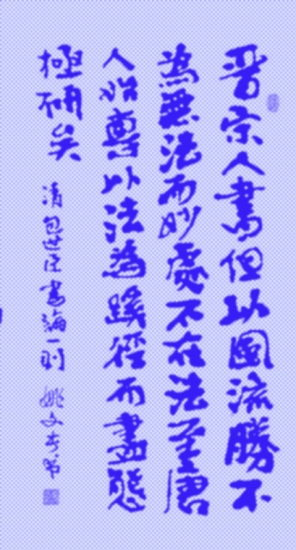 晋宋人書但以風流勝不
為無法而妙處不在法至唐
人始專以法為蹊徑而盡態
極妍矣
清包世臣書論一則 姚文